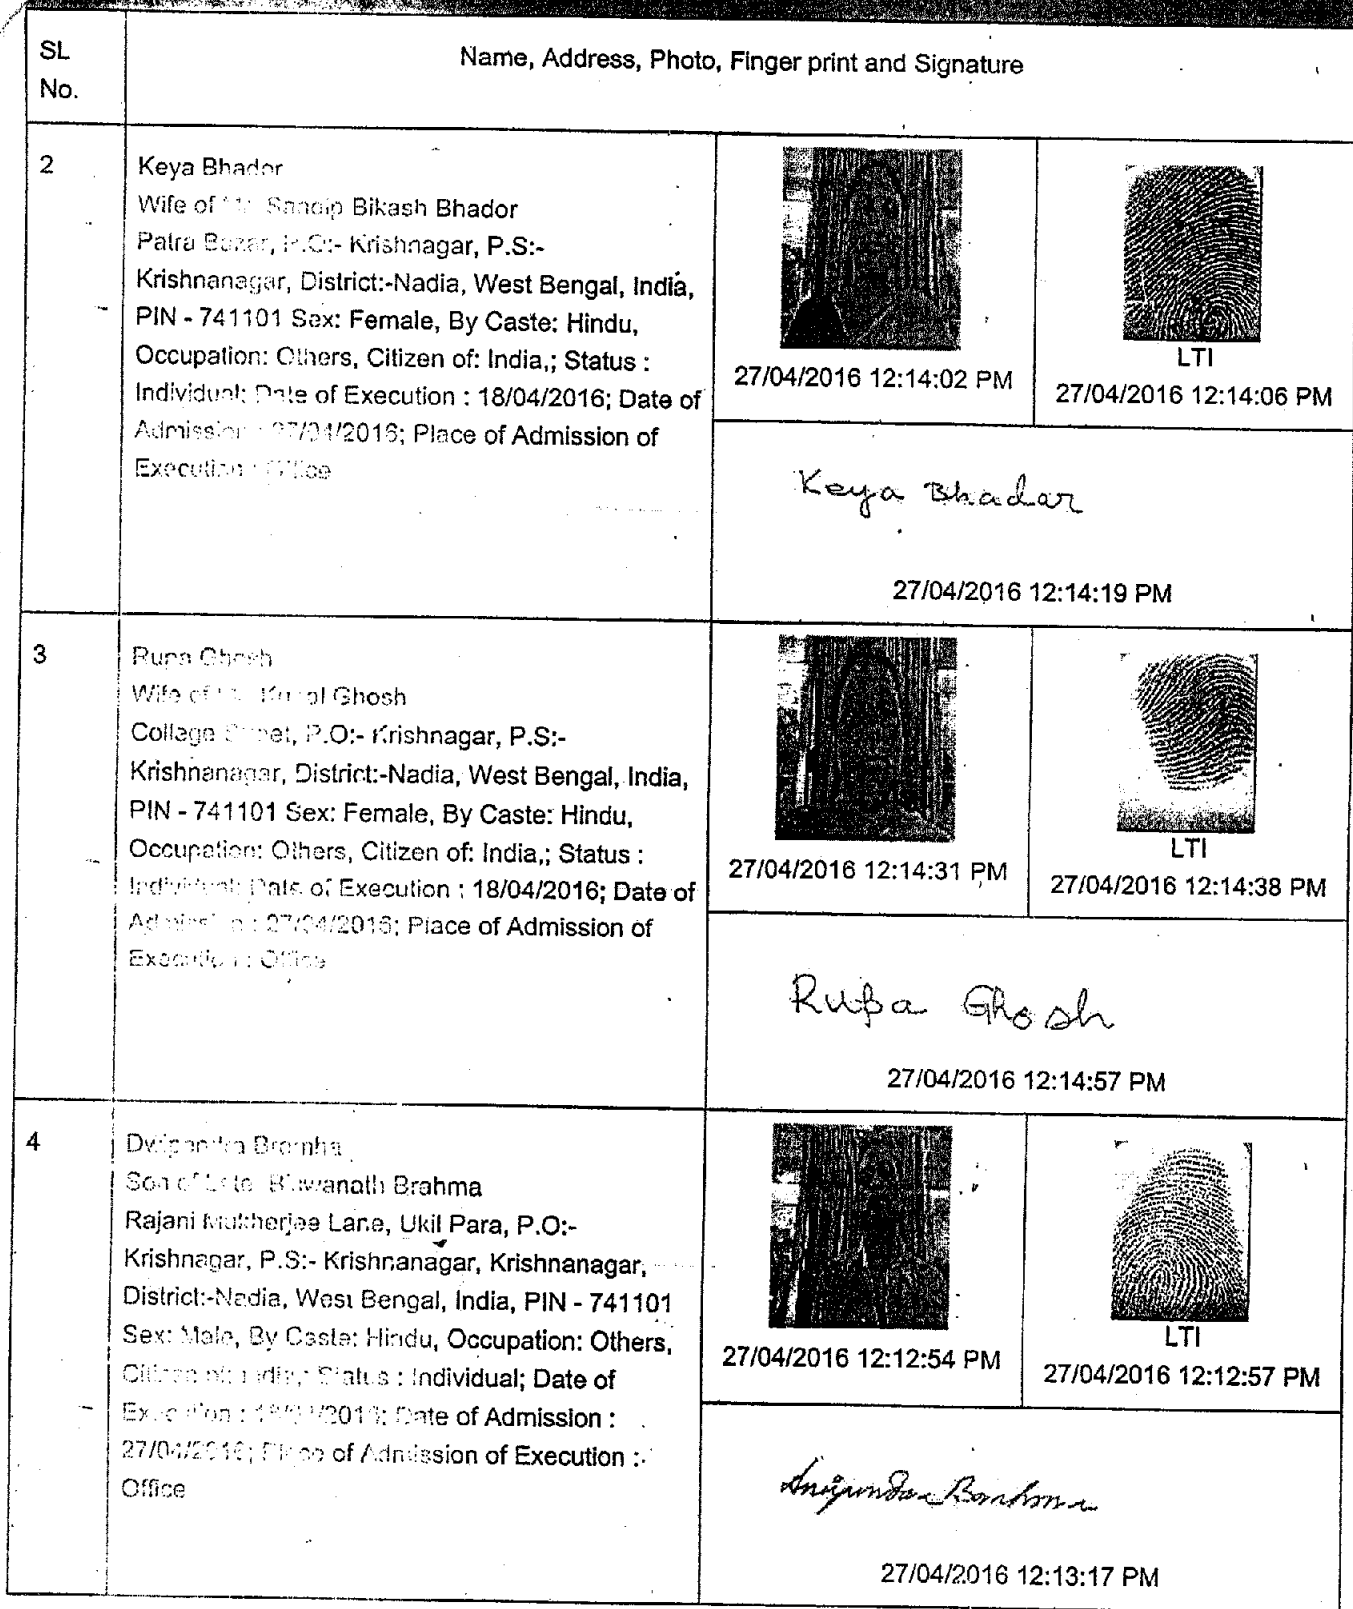 SL
No.
Name, Address, Photo, Finger print and Signature
2
Keya Bhador
Wife of Sandip Bikash Bhador
Patra Bazar, P.O:- Krishnagar, P.S:-
Krishnanagar, District:-Nadia, West Bengal, India,
PIN - 741101 Sex: Female, By Caste: Hindu,
Occupation: Others, Citizen of: India,; Status :
Individual; Date of Execution : 18/04/2016; Date of
Admission : 27/04/2016; Place of Admission of
Execution : Office
27/04/2016 12:14:02 PM
LTI
27/04/2016 12:14:06 PM
Keya Bhadar
27/04/2016 12:14:19 PM
3
Rupa Ghosh
Wife of Ghosh
Collage Street, P.O:- Krishnagar, P.S:-
Krishnanagar, District:-Nadia, West Bengal, India,
PIN - 741101 Sex: Female, By Caste: Hindu,
Occupation: Others, Citizen of: India,; Status :
Individual; Date of Execution : 18/04/2016; Date of
Admission : 27/04/2016; Place of Admission of
Execution : Office
27/04/2016 12:14:31 PM
LTI
27/04/2016 12:14:38 PM
Rupa Ghosh
27/04/2016 12:14:57 PM
4
Son of Late Brahma
Rajani Mukherjee Lane, Ukil Para, P.O:-
Krishnagar, P.S:- Krishnanagar, Krishnanagar,
District:-Nadia, West Bengal, India, PIN - 741101
Sex: Male, By Caste: Hindu, Occupation: Others,
Citizen of: India,; Status : Individual; Date of
Execution : 18/04/2016; Date of Admission :
27/04/2016; Place of Admission of Execution :
Office
27/04/2016 12:12:54 PM
LTI
27/04/2016 12:12:57 PM
27/04/2016 12:13:17 PM